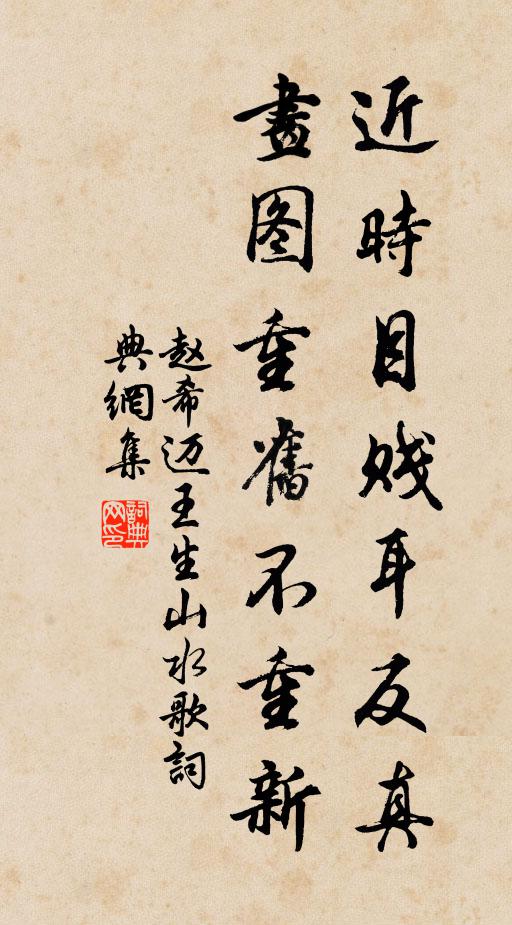 近時目賤耳反真
畫圖重舊不重新
赵希迈王生山水歌詞
典網集
詞典
网印